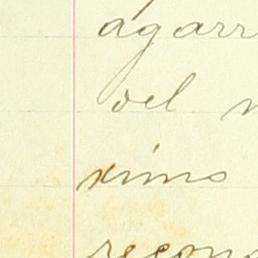 agarr
del
ximo
recon